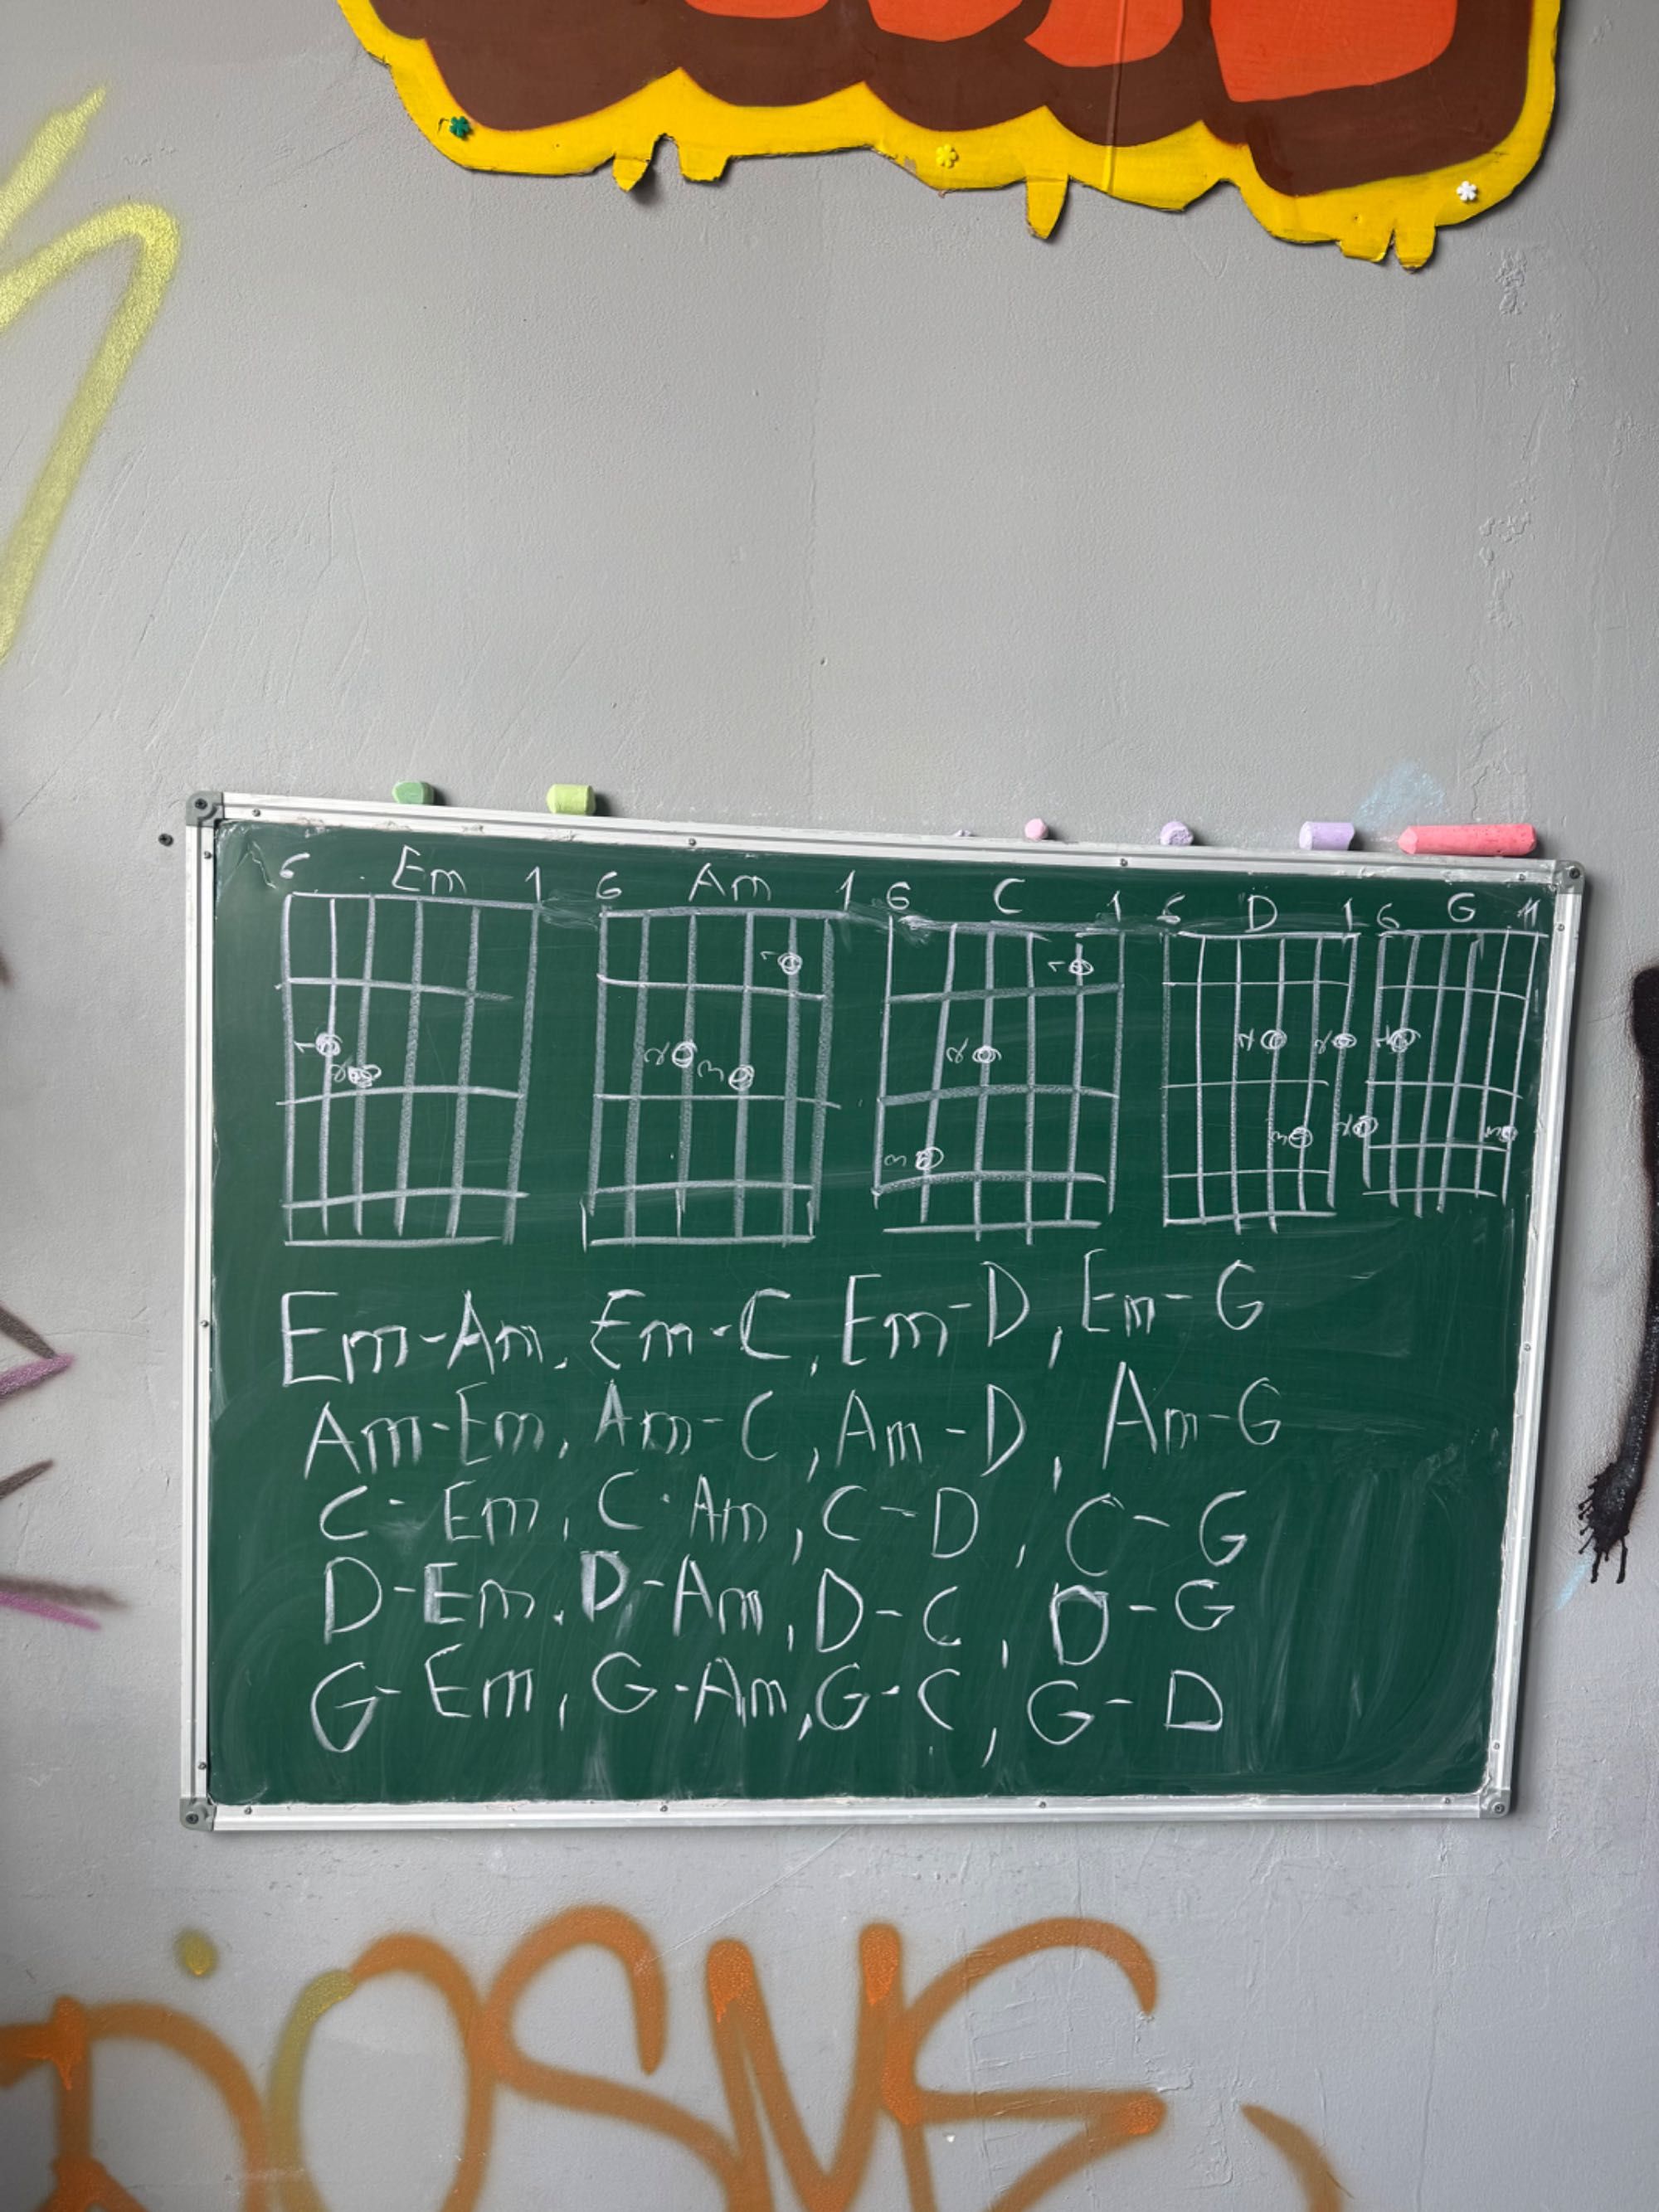 6 Em 1 6 Am 1 6 C 1 6 D 1 6 G 1
1 1
1 2 2 3 2 1 2 1
3 3 2 3
Em-Am, Em-C, Em-D, Em-G
Am-Em, Am-C, Am-D, Am-G
C-Em, C-Am, C-D, C-G
D-Em, D-Am, D-C, D-G
G-Em, G-Am, G-C, G-D